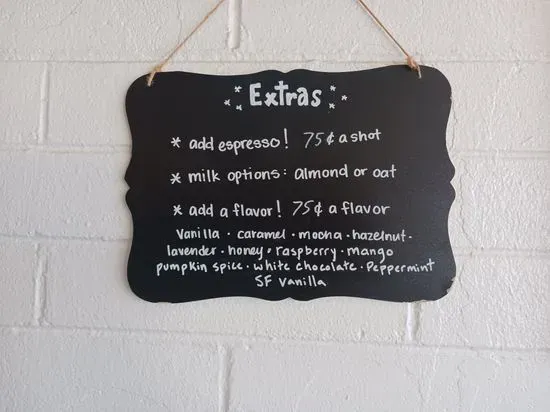 Extras
* add espresso! 75¢ a shot
* milk options: almond or oat
* add a flavor! 75¢ a flavor
Vanilla · caramel · mocha · hazelnut ·
lavender · honey · raspberry · mango
pumpkin spice · white chocolate · Peppermint
SF Vanilla